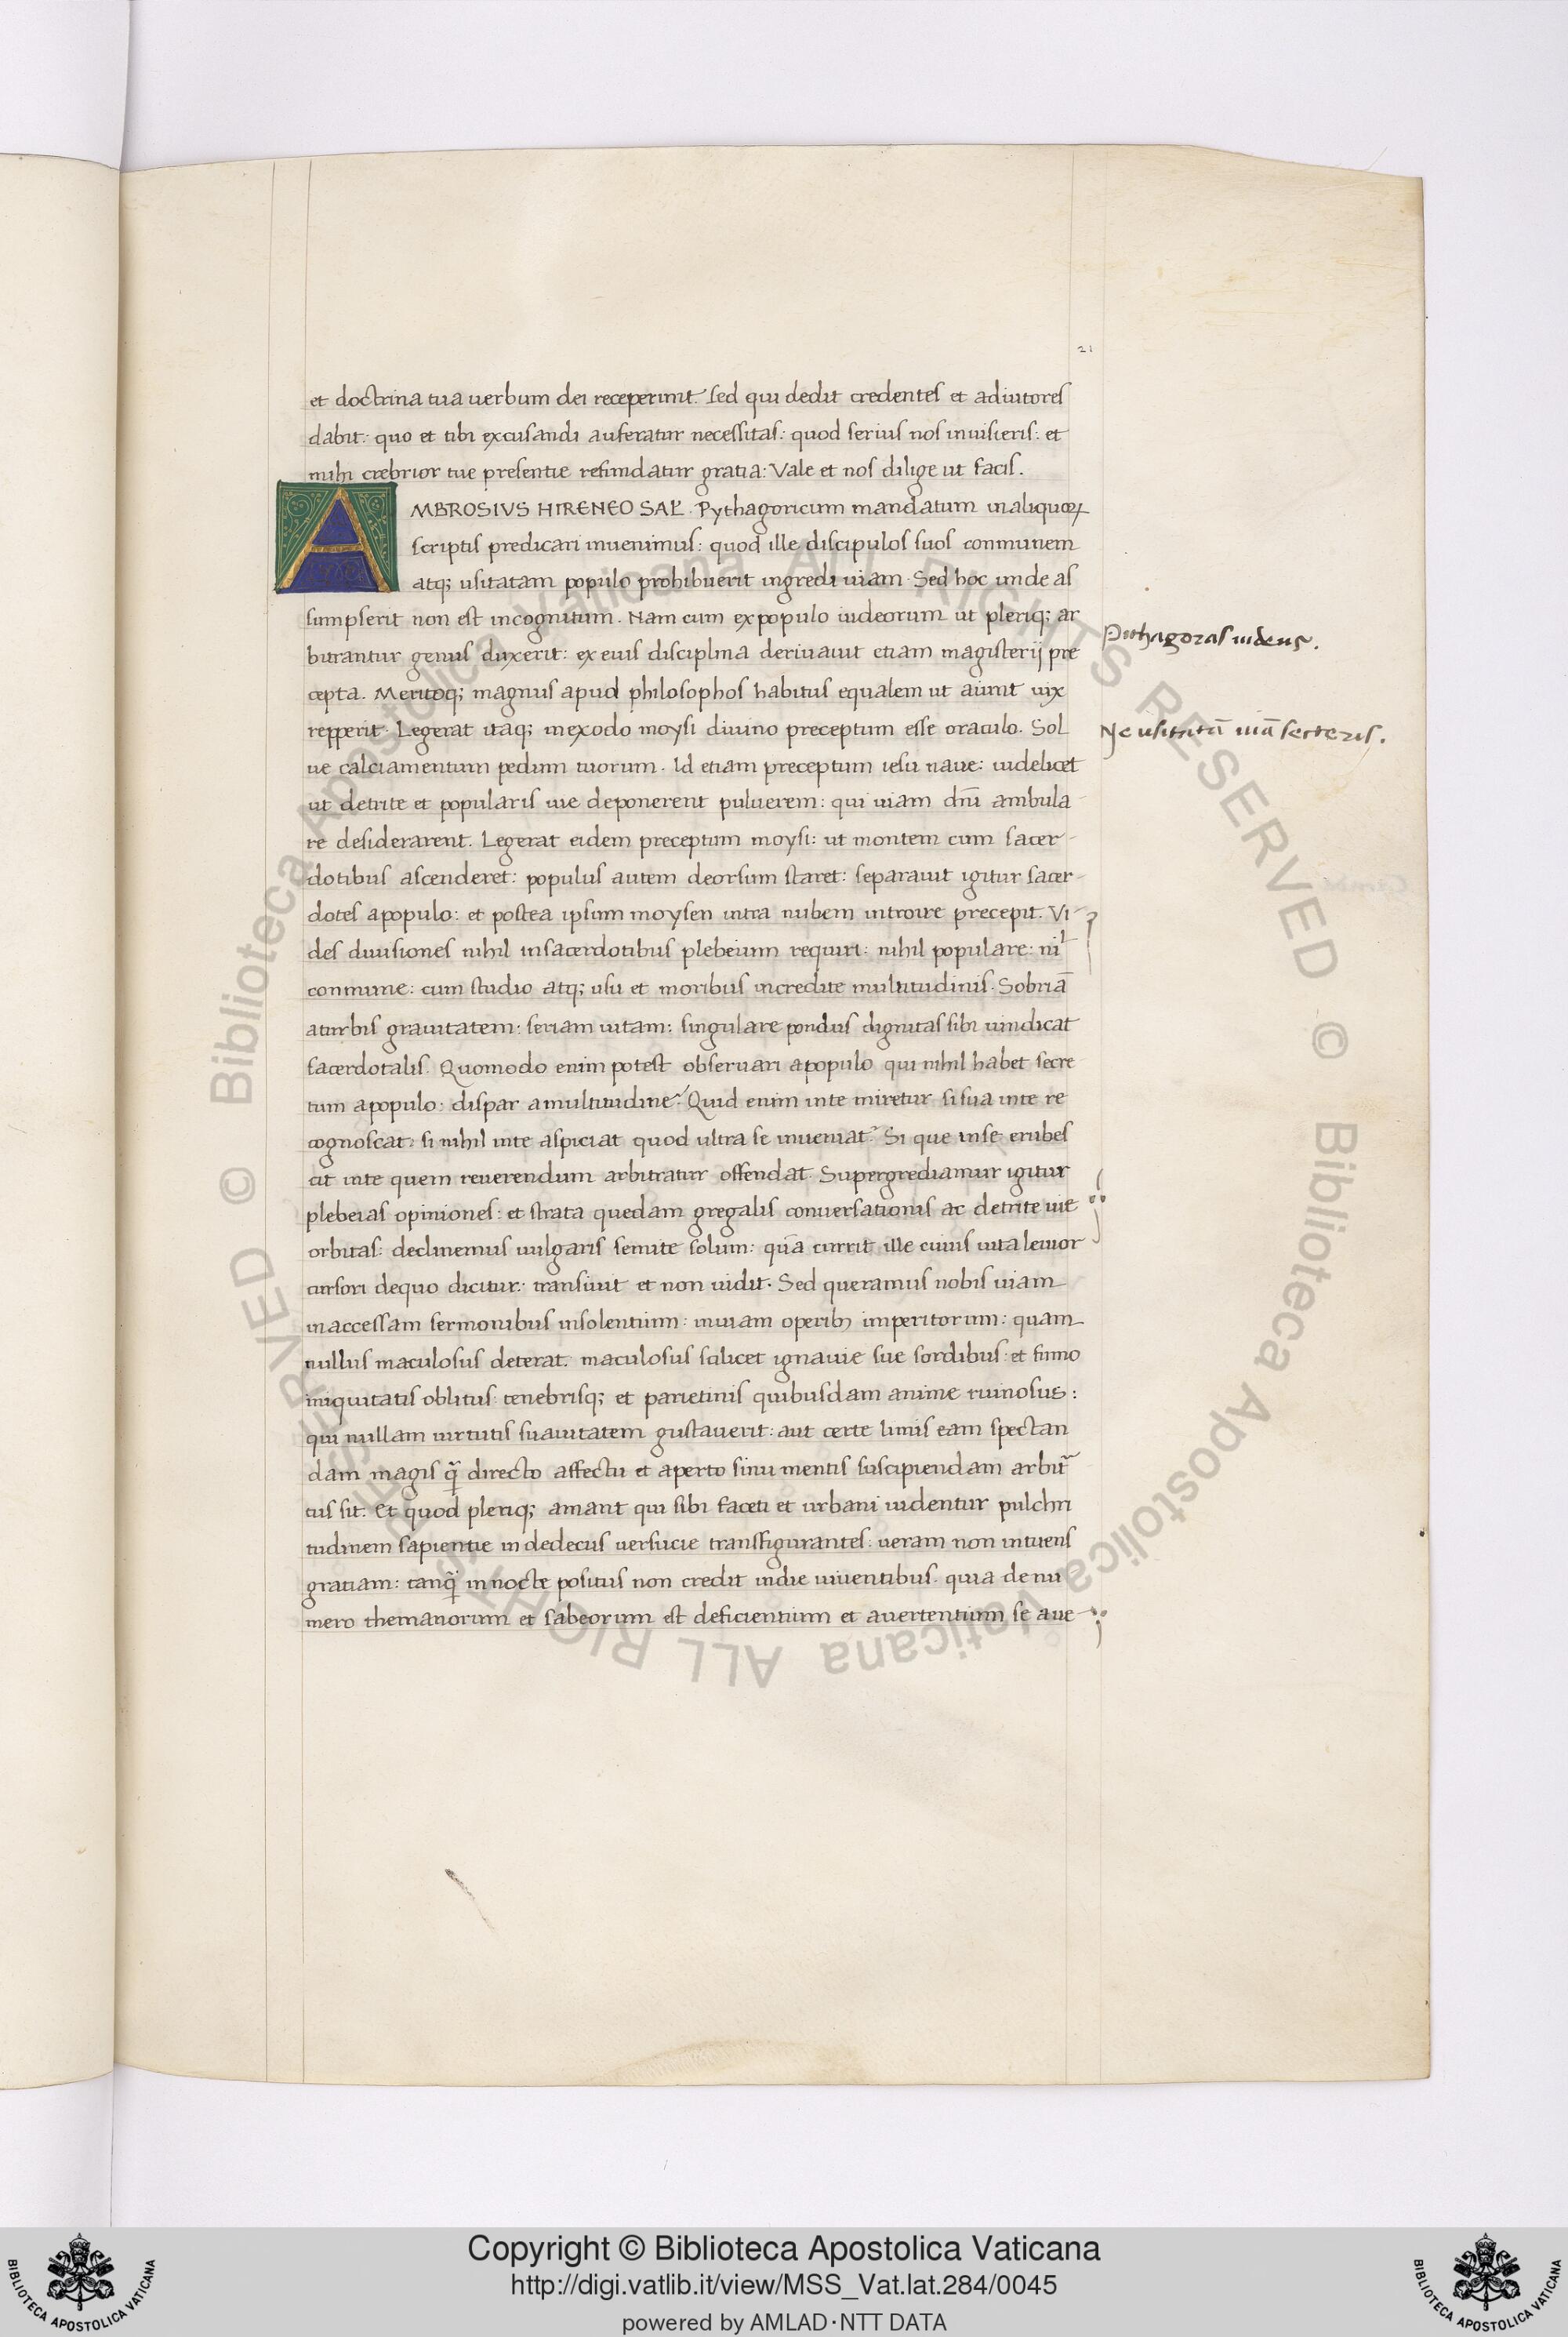 21
et doctrina tua uerbum dei receperunt. Sed qui dedit credentes et adiutores
dabit: quo et tibi excusandi auferatur necessitas: quod serius nos inuiseris: et
mihi crebrior tue presentie refundatur gratia: Vale et nos dilige ut facis.
AMBROSIVS HIRENEO SAL̄. Pythagoricum mandatum in aliquoꝝ
scriptis predicari inuenimus: quod ille discipulos suos communem
atq; usitatam populo prohibuerit ingredi uiam. Sed hoc unde as
sumpserit non est incognitum. Nam cum ex populo iudeorum ut pleriq; ar
bitrantur genus duxerit: ex eius disciplina deriuauit etiam magisterij pre
cepta. Meritoq; magnus apud philosophos habitus equalem ut aiunt uix
repperit. Legerat itaq; in exodo moysi diuino preceptum esse oraculo. Sol
ue calciamentum pedum tuorum. Id etiam preceptum iesu naue: uidelicet
ut detrite et popularis uie deponerent puluerem: qui uiam dn̄i ambula
re desiderarent. Legerat eidem preceptum moysi: ut montem cum sacer-
dotibus ascenderet: populus autem deorsum staret: separauit igitur sacer-
dotes a populo: et postea ipsum moysen intra nubem introire precepit. Vi-
des diuisiones nihil in sacerdotibus plebeium requiri: nihil populare: nil
conmune: cum studio atq; usu et moribus incredite multitudinis. Sobriā
a turbis grauitatem: seriam uitam: singulare pondus dignitas sibi uindicat
sacerdotalis. Quomodo enim potest obseruari a populo qui nihil habet secre
tum a populo: dispar a multitudine? Quid enim in te miretur si sua in te re
cognoscat: si nihil in te aspiciat quod ultra se inueniat? Si que in se erubes
cit in te quem reuerendum arbitratur offendat. Supergrediamur igitur
plebeias opiniones: et strata quedam gregalis conuersationis ac detrite uie
orbitas: declinemus uulgaris semite solum: quā currit ille cuius uita leuior
cursori de quo dicitur: transiuit et non uidit. Sed queramus nobis uiam
inaccessam sermonibus insolentium: inuiam operib; imperitorum: quam
nullus maculosus deterat. maculosus scilicet ignauie sue sordibus: et fumo
iniquitatis oblitus: tenebrisq; et parietinis quibusdam anime ruinosus:
qui nullam uirtutis suauitatem gustauerit: aut certe limis eam spectan
dam magis q̄ directo affectu et aperto sinu mentis suscipiendam arbitr̄
tus sit. Et quod pleriq; amant qui sibi faceti et urbani uidentur pulchri
tudinem sapientie in dedecus uersucie transfigurantes: ueram non intuens
gratiam: tanq̄ in nocte positus non credit in die uiuentibus. quia de nu
mero themanorum et sabeorum est deficientium et auertentium se a ue-
Pythagoras iudeus.
Ne usitatā uiā secteris.
© Biblioteca Apostolica Vaticana ALL RIGHTS RESERVED © Biblioteca Apostolica Vaticana ALL RIGHTS RESERVED
Copyright © Biblioteca Apostolica Vaticana
http://digi.vatlib.it/view/MSS_Vat.lat.284/0045
powered by AMLAD·NTT DATA
BIBLIOTECA APOSTOLICA VATICANA
BIBLIOTECA APOSTOLICA VATICANA